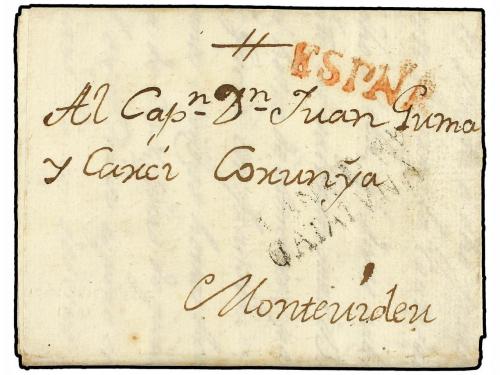 ESPAÑ
Al Capn. Dn. Juan Puma
y Carci Corunỹa
CATALUÑA
Montevideu